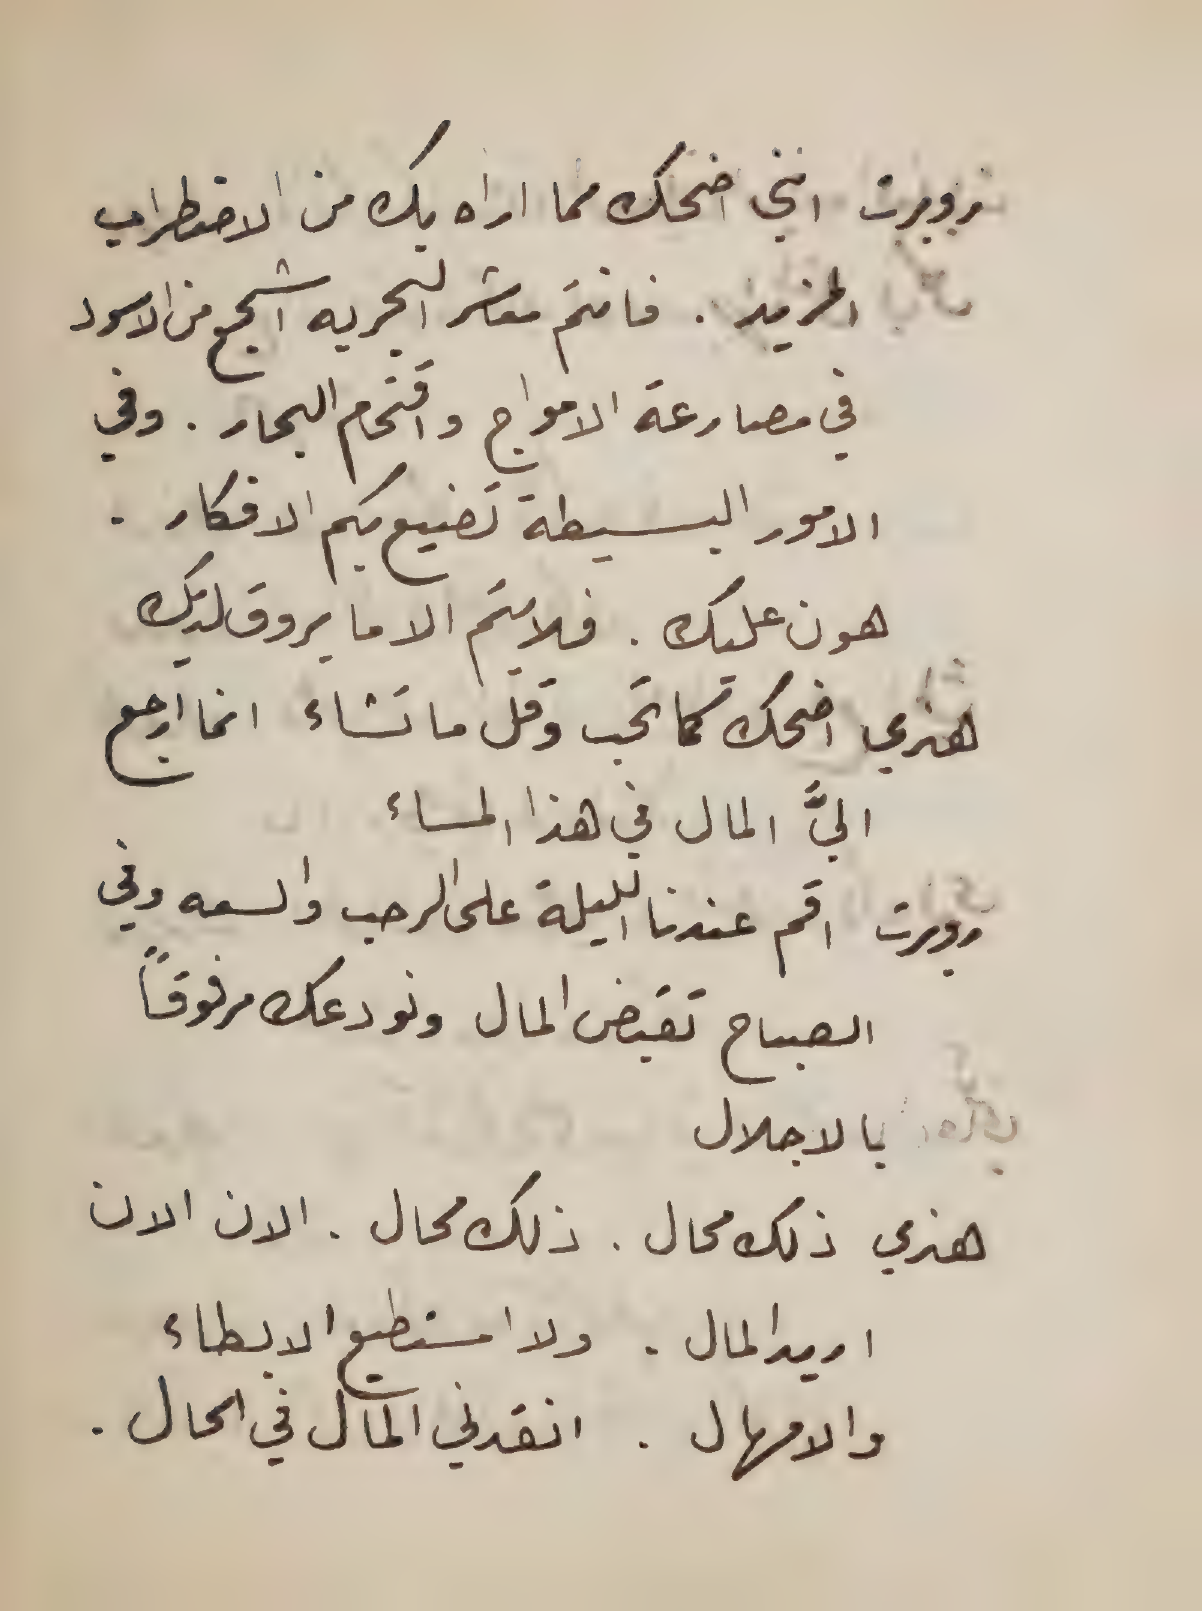 روبرت انني اضحك مما اراه بك من الاضطراب
المزيد . فانتم معشر البحريه اشجع من الاسود
في مصارعة الامواج واقتحام البحار . وفي
الامور البسيطة تضيع بكم الافكار .
هون عليك . فلا يتم الا ما يروق لديك
هنري اضحك كما تحب وقل ما تشاء انما ارجع
اليَّ المال في هذا المساء
روبرت اقم عندنا الليلة على الرحب والسعه وفي
الصباح تقبض المال ونودعك مرفوقاً
بالاجلال
هنري ذلك محال . ذلك محال . الان الان
اريد المال . ولا استطيع الابطاء
والامهال . انقدني المال في الحال .